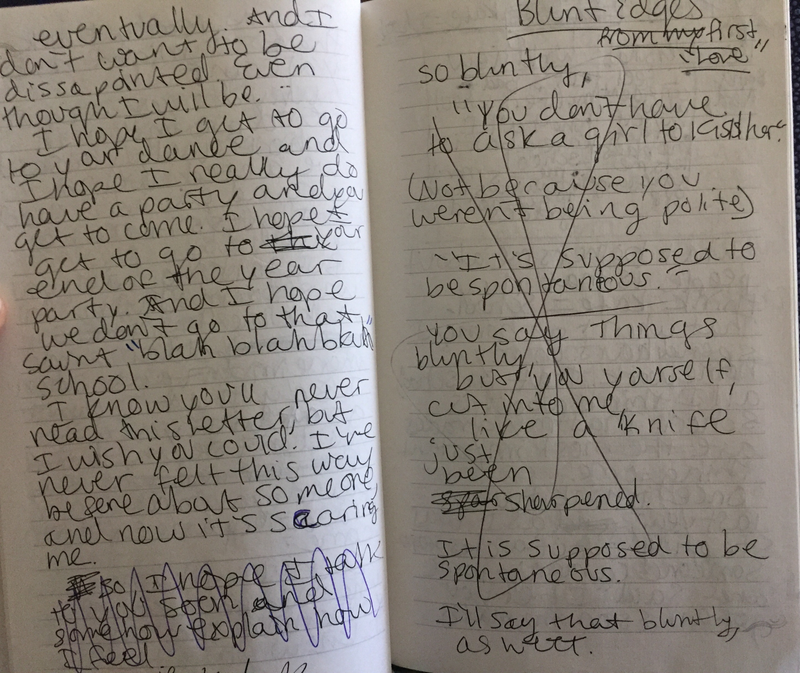 eventually. And I
don't want to be
dissapointed. Even
though I will be.
I hope I get to go
to your dance and
I hope I really do
have a party and you
get to come. I hope I
get to go to your
end of the year
party. And I hope
we don't go to that
saint "blah blah blah"
school.
I know you'll never
read this letter, but
I wish you could. I've
never felt this way
before about someone,
and now it's scaring
me.
so I hope I talk
to you soon and
somehow explain how
I feel.
Blunt Edges
from my first
"Love"
so bluntly,
"You don't have
to ask a girl to kiss her."
(Not because you
weren't being polite)
"It's supposed to
be spontaneous."
You say things
bluntly
but you yourself,
cut into me,
like a knife
just
been
sharpened.
It is supposed to be
spontaneous.
I'll say that bluntly,
as well.